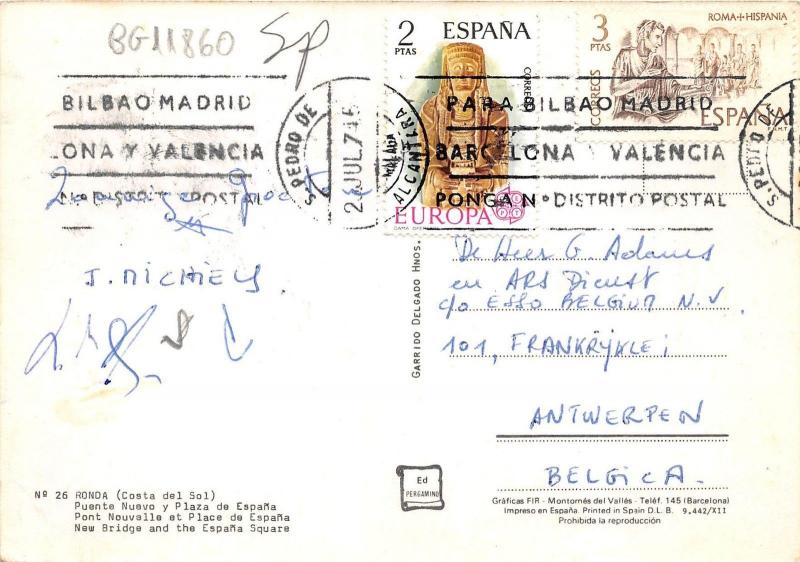 BG11860
Sp
2 PTAS
ESPAÑA
CORREOS
EUROPA
CEPT
3 PTAS
ROMA+HISPANIA
CORREOS
ESPAÑA
BILBAO MADRID
LONA Y VALENCIA
Nº DISTRITO POSTAL
S. PEDRO DE
ALCANTARA
MALAGA
JUL.74
PARA BILBAO MADRID
BARCELONA VALENCIA
PONGA Nº DISTRITO POSTAL
S. PEDRO D
J. MICHIELS
De Heer G. Adams
en ARS Dienst
c/o ESSO BELGIUM N.V
101, FRANKRIJKLEI
ANTWERPEN
BELGICA.
GARRIDO DELGADO HNOS.
Nº 26 RONDA (Costa del Sol)
Puente Nuevo y Plaza de España
Pont Nouvalle et Place de España
New Bridge and the España Square
Ed
PERGAMINO
Gráficas FIR - Montornés del Vallés - Teléf. 145 (Barcelona)
Impreso en España. Printed in Spain D.L. B. 9.442/XII
Prohibida la reproducción